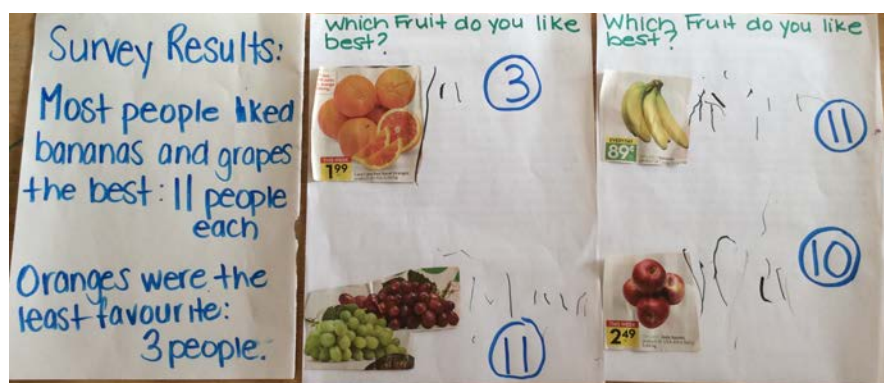 Survey Results:
Most people liked
bananas and grapes
the best: 11 people
each
Oranges were the
least favourite:
3 people.
Which Fruit do you like
best?
3
1.99
11
Which Fruit do you like
best?
89¢
11
10
2.49